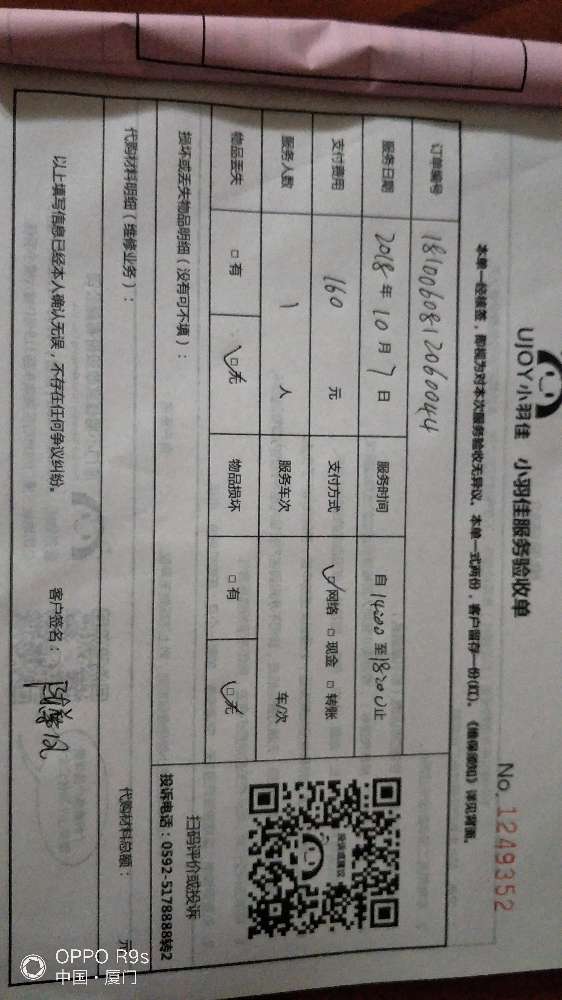 UJOY小羽佳 小羽佳服务验收单
No. 1249352
本单一经核签，即视为对本次服务验收无异议。本单一式两份，客户留存一份(红)。《维保须知》详见背面。
订单编号 1810060812060044
服务日期 2018年10月7日 服务时间 自14:00至18:00止
支付费用 160元 支付方式 ☑网络 □现金 □转账
服务人数 1人 服务车次 车/次
物品丢失 □有 ☑无 物品损坏 □有 ☑无
投诉或建议
扫码评价或投诉
投诉电话：0592-5178888转2
损坏或丢失物品明细（没有可不填）：
代购材料明细（维修业务）： 代购材料总额： 元
以上填写信息已经本人确认无误，不存在任何争议纠纷。 客户签名：
OPPO R9s
中国·厦门